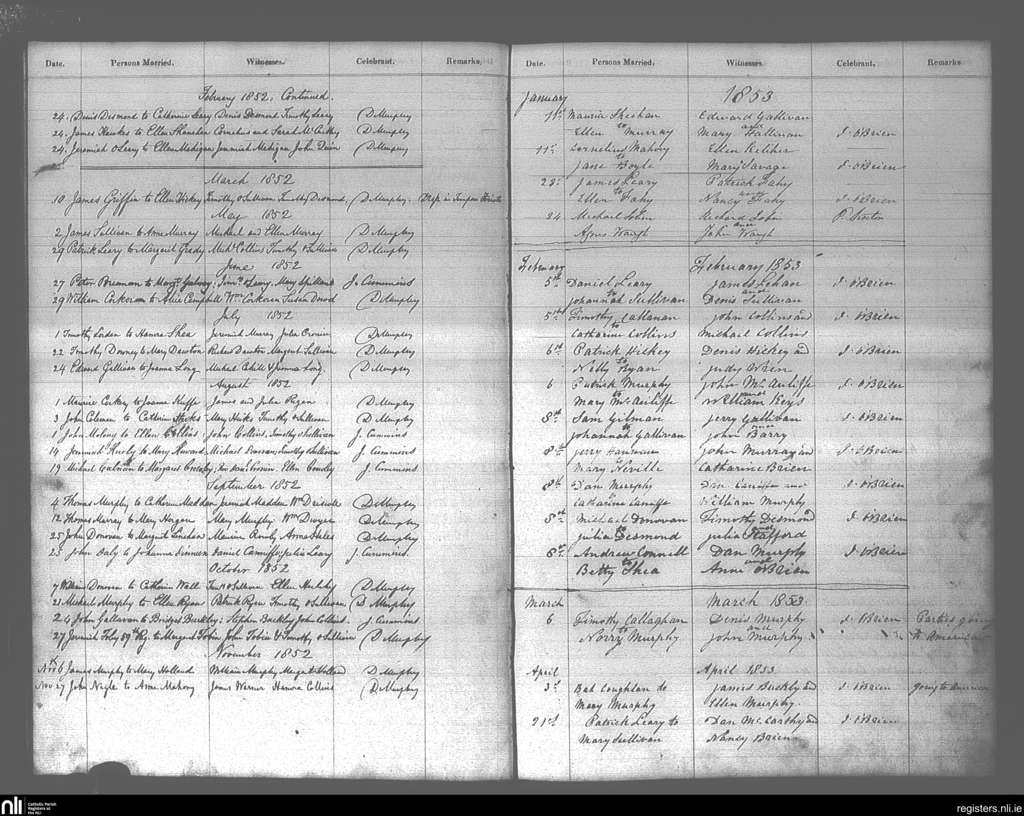 Date. Persons Married. Witnesses. Celebrant. Remarks.
February 1852. Continued.
24. Denis Desmond to Catherine Leary Denis Desmond Timothy Leary D Murphy
24. James Hawkes to Ellen Cornelius and Sarah McCarthy D Murphy
24. Jeremiah O Leary to Ellen Madigan Jeremiah Madigan John D Murphy
March 1852
10 James Griffin to Ellen Hickey Timothy O Sullivan Timothy Desmond, D Murphy. Disp in
May 1852
2 James Sullivan to Anne Murray Michael and Ellen Murray D Murphy
29 Patrick Leary to Margaret Grady Michl Collins Timothy O Sullivan D Murphy
June 1852
27 Peter Brennan to Margt Galwey; Leary, Mary J Cummins
29 William Corkoran to Alice Campbell Wm Corkoran Susan D Murphy
July 1852
1 Timothy to Hanora Shea Jeremiah Murray Julia Cronin D Murphy
22 Timothy Downey to Mary Dawton Richard Dawton Margaret Sullivan D Murphy
24 Edward Gallivan to Joanna Long Michael Cahill & Joanna Long. D Murphy.
August 1852
1 Maurice to Joanna James and Julia Ryan D Murphy
3 John Coleman to Catherine Mary Timothy O Sullivan D Murphy
1 John Molony to Ellen Collins : John Collins. Timothy O Sullivan J. Cummins
14 Jeremiah to Mary Howard Michael Timothy O Sullivan J Cummins
19 Michael to Margaret ; Ellen J. Cummins
September 1852
4 Thomas Murphy to Catherine Madden Jeremiah Madden Wm Driscoll D Murphy
12 Thomas Murray to Mary Horgan Mary Murphy Wm Dwyer D Murphy
25 John Donovan to Margaret Linehan Maurice Anna D Murphy
25 John Daly to Johanna Daniel Julia Leary J. Cummins.
October 1852
7 William Donovan to Catherine Wall O Sullivan Ellen D Murphy
21 Michael Murphy to Ellen Ryan Patrick Ryan Timothy O Sullivan D Murphy
24 John Gallavan to Bridget Buckley; Stephen Buckley John Collins. J. Cummins
27 Jeremiah Foley 89th Rg. to Margaret Tobin John Tobin & Timothy O Sullivan D Murphy
November 1852
Nov 6 James Murphy to Mary Holland William Murphy Margaret Holland D Murphy
Nov 27 John Nagle to Anne Mahony James Warner Hanora Collins D Murphy
Date. Persons Married. Witnesses. Celebrant. Remarks
January 1853
11th Maurice Sheehan Edward Gallivan
Ellen to Murray Mary and Hallinan J. O'Brien
11th Cornelius Mahony Ellen Kelleher
Jane to Boyle Mary Savage J. O'Brien
28th James Leary Patrick Fahy
Ellen to Fahy Nancy and Fahy J. O'Brien
24 Michael Richard P.
Agnes Waugh John and Waugh
February February 1853
5th Daniel Leary James Lehan J. O'Brien
Johannah to Sullivan Denis and Sullivan
5th Timothy Callanan John Collins and J. O'Brien
Catharine to Collins Michael Collins
6th Patrick Hickey Denis Hickey and J. O'Brien
Nelly to Ryan Judy
6 Patrick Murphy John McAuliffe J. O'Brien
Mary to McAuliffe William and Keys
8th Sam Gilman Jerry Gallivan J. O'Brien
Johannah to Gallivan John and Barry
8th Jerry John Murray and J. O'Brien
Mary to Neville Catharine Brien
8th Dan Murphy Dan and J. O'Brien
Catharine to William Murphy
8th Michael Donovan Timothy Desmond J. O'Brien
Julia to Desmond Julia and Stafford
8th Andrew Connell Dan Murphy J. O'Brien
Betty to Shea Anne and O'Brien
March March 1853
6 Timothy Callaghan Denis Murphy J. O'Brien Parties going
Norry to Murphy John and Murphy to America
April April 1853
3rd Bab Coughlan to James Buckley and J. O'Brien Going to America
Mary Murphy Ellen Murphy.
21st Patrick Leary to Dan McCarthy and J. O'Brien
Mary Sullivan Nancy Brien
nli Catholic Parish Registers at the NLI
registers.nli.ie